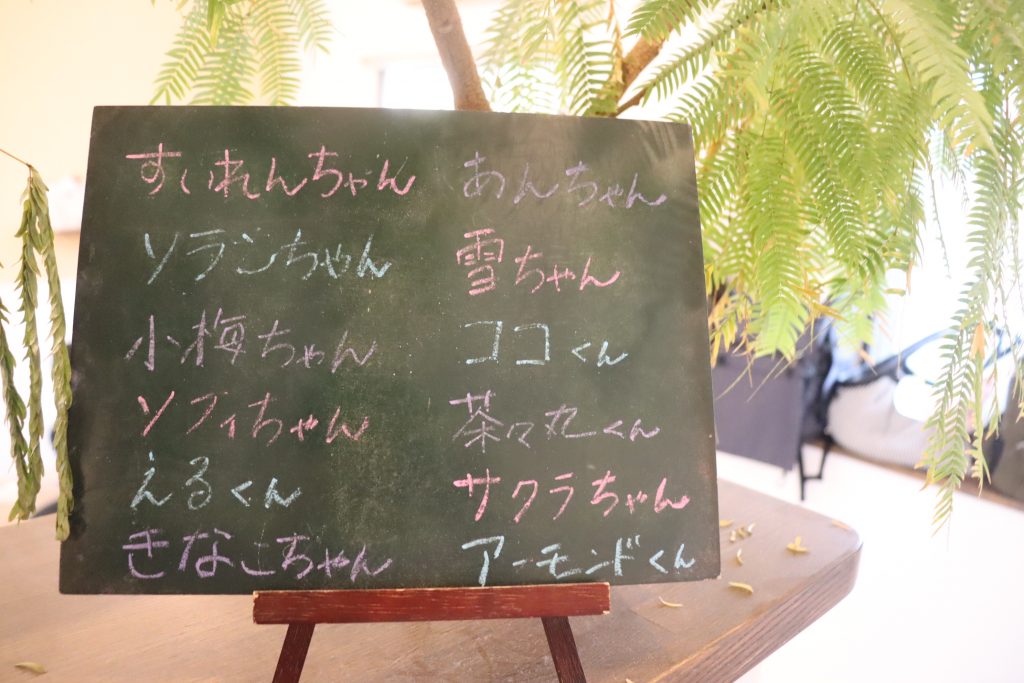 すいれんちゃん
ソランちゃん
小梅ちゃん
ソフィちゃん
えるくん
きなこちゃん
あんちゃん
雪ちゃん
ココくん
茶々丸くん
サクラちゃん
アーモンドくん